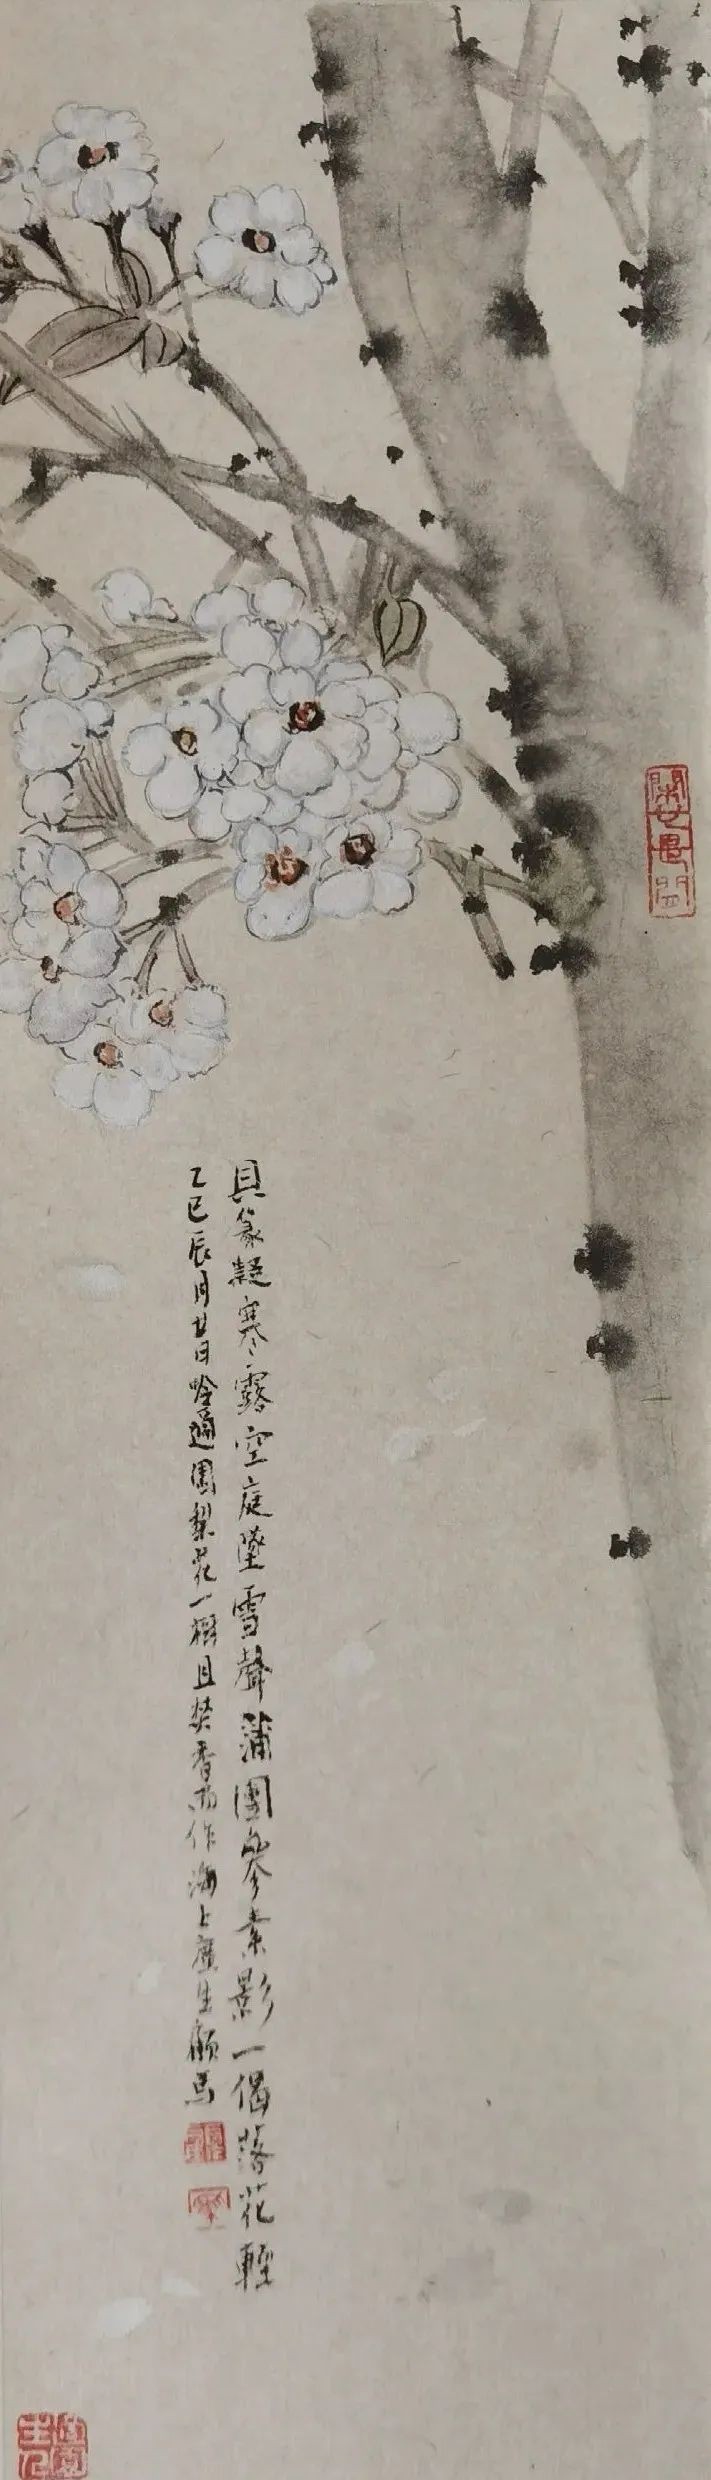 具篆凝寒露空庭墜雪聲蒲團參素影一偈落花輕
乙巳辰月廿日吟過園梨花一樹且焚香而作海上廬生顧馬